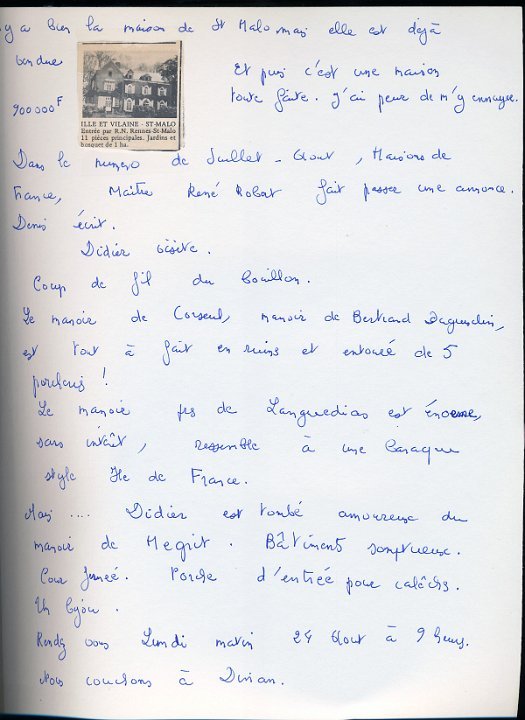 y a bien la maison de St Malo mais elle est déjà
vendue
900000F
ILLE ET VILAINE - ST-MALO
Entrée par R.N. Rennes-St-Malo
11 pièces principales. Jardins et
bosquet de 1 ha.
Et puis c'est une maison
toute faite. J'ai peur de m'y ennuyer.
Dans le numéro de Juillet - Aout, Maisons de
France, Maître René Robert fait passer une annonce.
Denis écrit.
Didier visite.
Coup de fil du Couillon.
Le manoir de Corseul, manoir de Bertrand Duguesclin,
est tout à fait en ruins et entouré de 5
porcheries !
Le manoir près de Languedias est énorme,
sans intérêt, ressemble à une baraque
style Ile de France.
Mais .... Didier est tombé amoureux du
manoir de Megrit. Bâtiments somptueux.
Cour fermée. Porche d'entrée pour calèches.
Un bijou.
Rendez vous Lundi matin 24 Aout à 9 heures.
Nous couchons à Dinan.